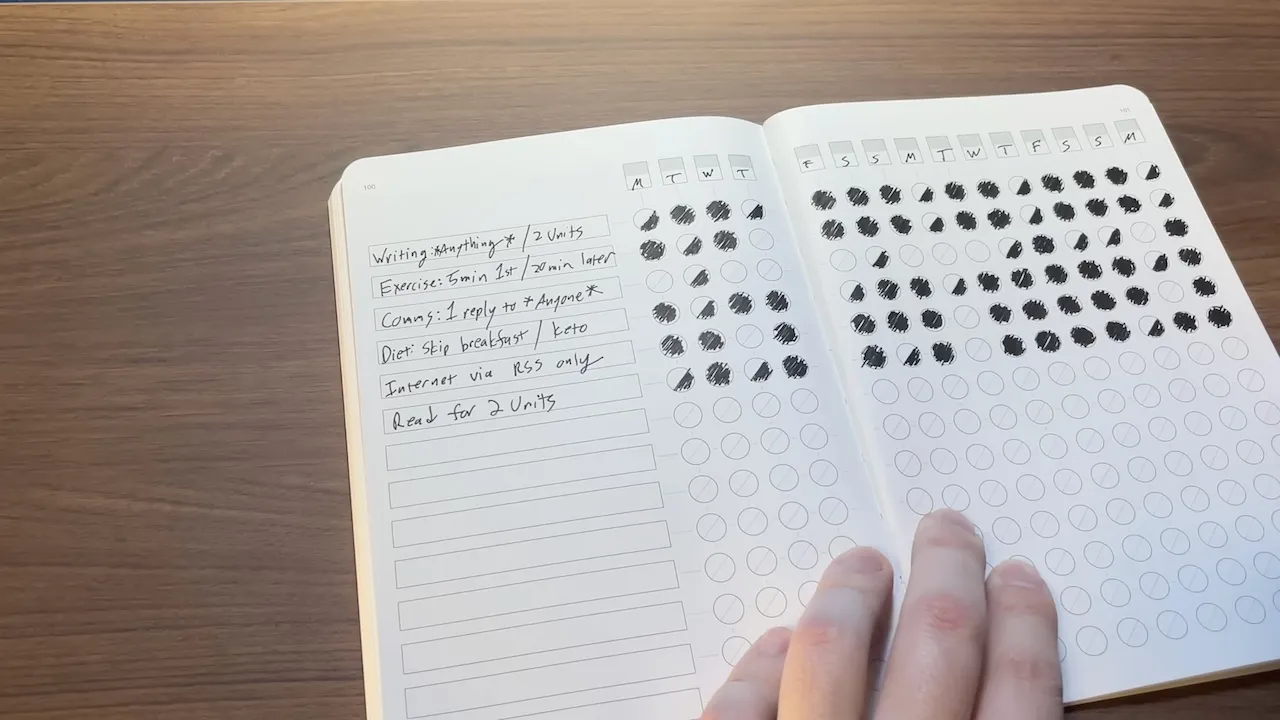 100
101
M T W T
F S S M T W T F S S M
Writing: *Anything* / 2 Units
Exercise: 5 min 1st / 20 min later
Comms: 1 reply to *Anyone*
Diet: Skip breakfast / keto
Internet via RSS only
Read for 2 Units